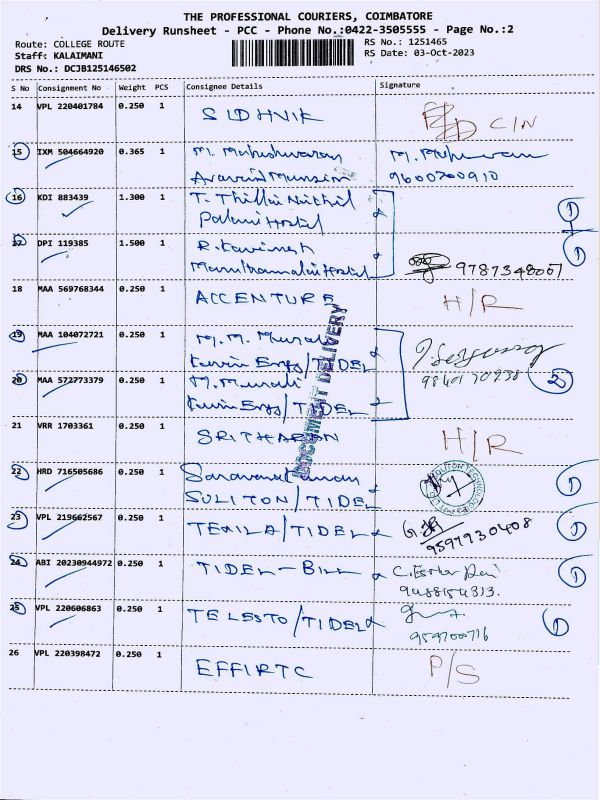 THE PROFESSIONAL COURIERS, COIMBATORE
Delivery Runsheet - PCC - Phone No.:0422-3505555 - Page No.:2
Route: COLLEGE ROUTE
Staff: KALAIMANI
DRS No.: DCJB125146502
RS No.: 1251465
RS Date: 03-Oct-2023
S No Consignment No Weight PCS Consignee Details Signature
14 VPL 220401784 0.250 1 SIDHNIK C/N
15 IXM 504664920 0.365 1 M. Maheshwaran
9600700910
16 KDI 883439 1.300 1 T. Thillai Nithil
Palani Hostel 1
17 DPI 119385 1.500 1 R. Kavinesh
Hostel 9787348007 1
18 MAA 569768344 0.250 1 ACCENTURE H/R
19 MAA 104072721 0.250 1 M.M. Murali
Kevin Engg/TIDEL
20 MAA 572773379 0.250 1 M. Murali 2
Kevin Engg/TIDEL
DOCUMENT DELIVERY
21 VRR 1703361 0.250 1 SRITHARAN H/R
22 HRD 716505686 0.250 1 Saravanakumar
SULITON/TIDEL 1
23 VPL 219662567 0.250 1 TEXILA/TIDEL 1
9597930408
24 ABI 20230944972 0.250 1 TIDEL - BILL 1
25 VPL 220606863 0.250 1 TELESTO/TIDEL 1
26 VPL 220398472 0.250 1 EFFIRTC P/S